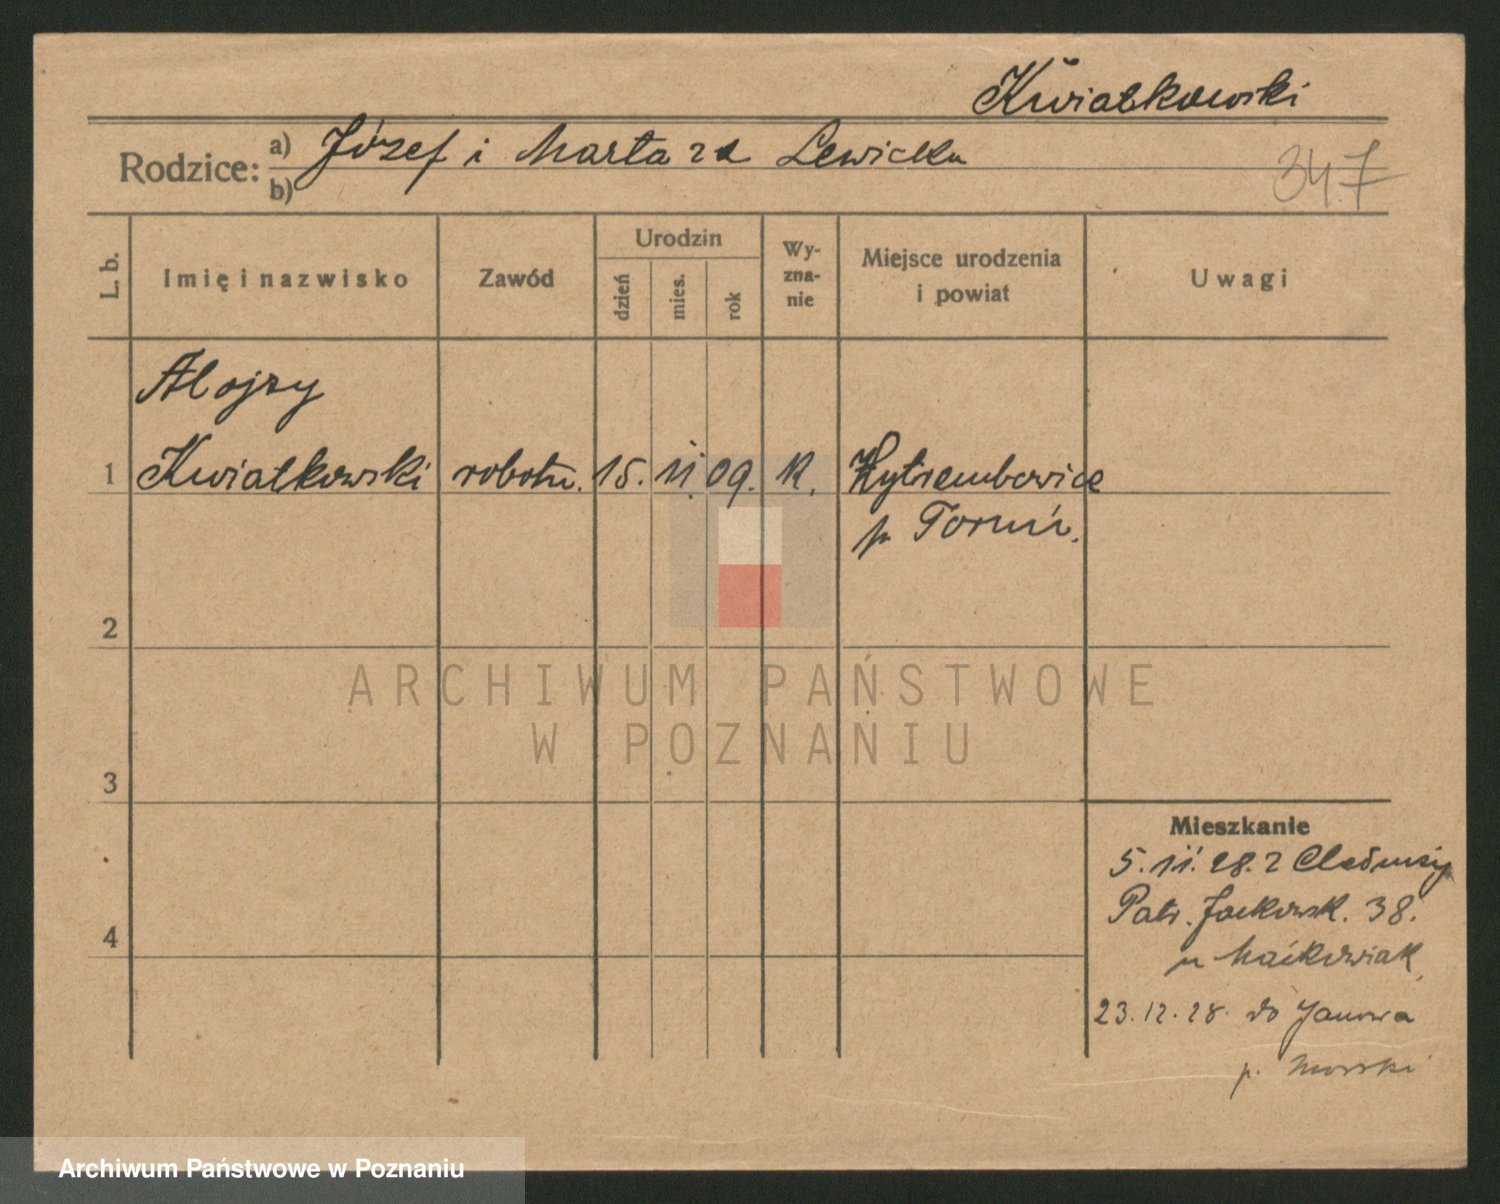 Kwiatkowski
Rodzice: a) Józef i Marta zd Lewicka
b)
347
L. b.
Imię i nazwisko
Zawód
Urodzin
dzień
mies.
rok
Wy-
zna-
nie
Miejsce urodzenia
i powiat
Uwagi
Alojzy
1 Kwiatkowski robotn. 15. 11. 09. K.
p. Toruń.
2
3
4
ARCHIWUM PAŃSTWOWE
W POZNANIU
Mieszkanie
5.11.28. z Chełmży
Patr. Jackowsk. 38.
u Maćkowiak
23.12.28. do Janowa
p. Morski
Archiwum Państwowe w Poznaniu